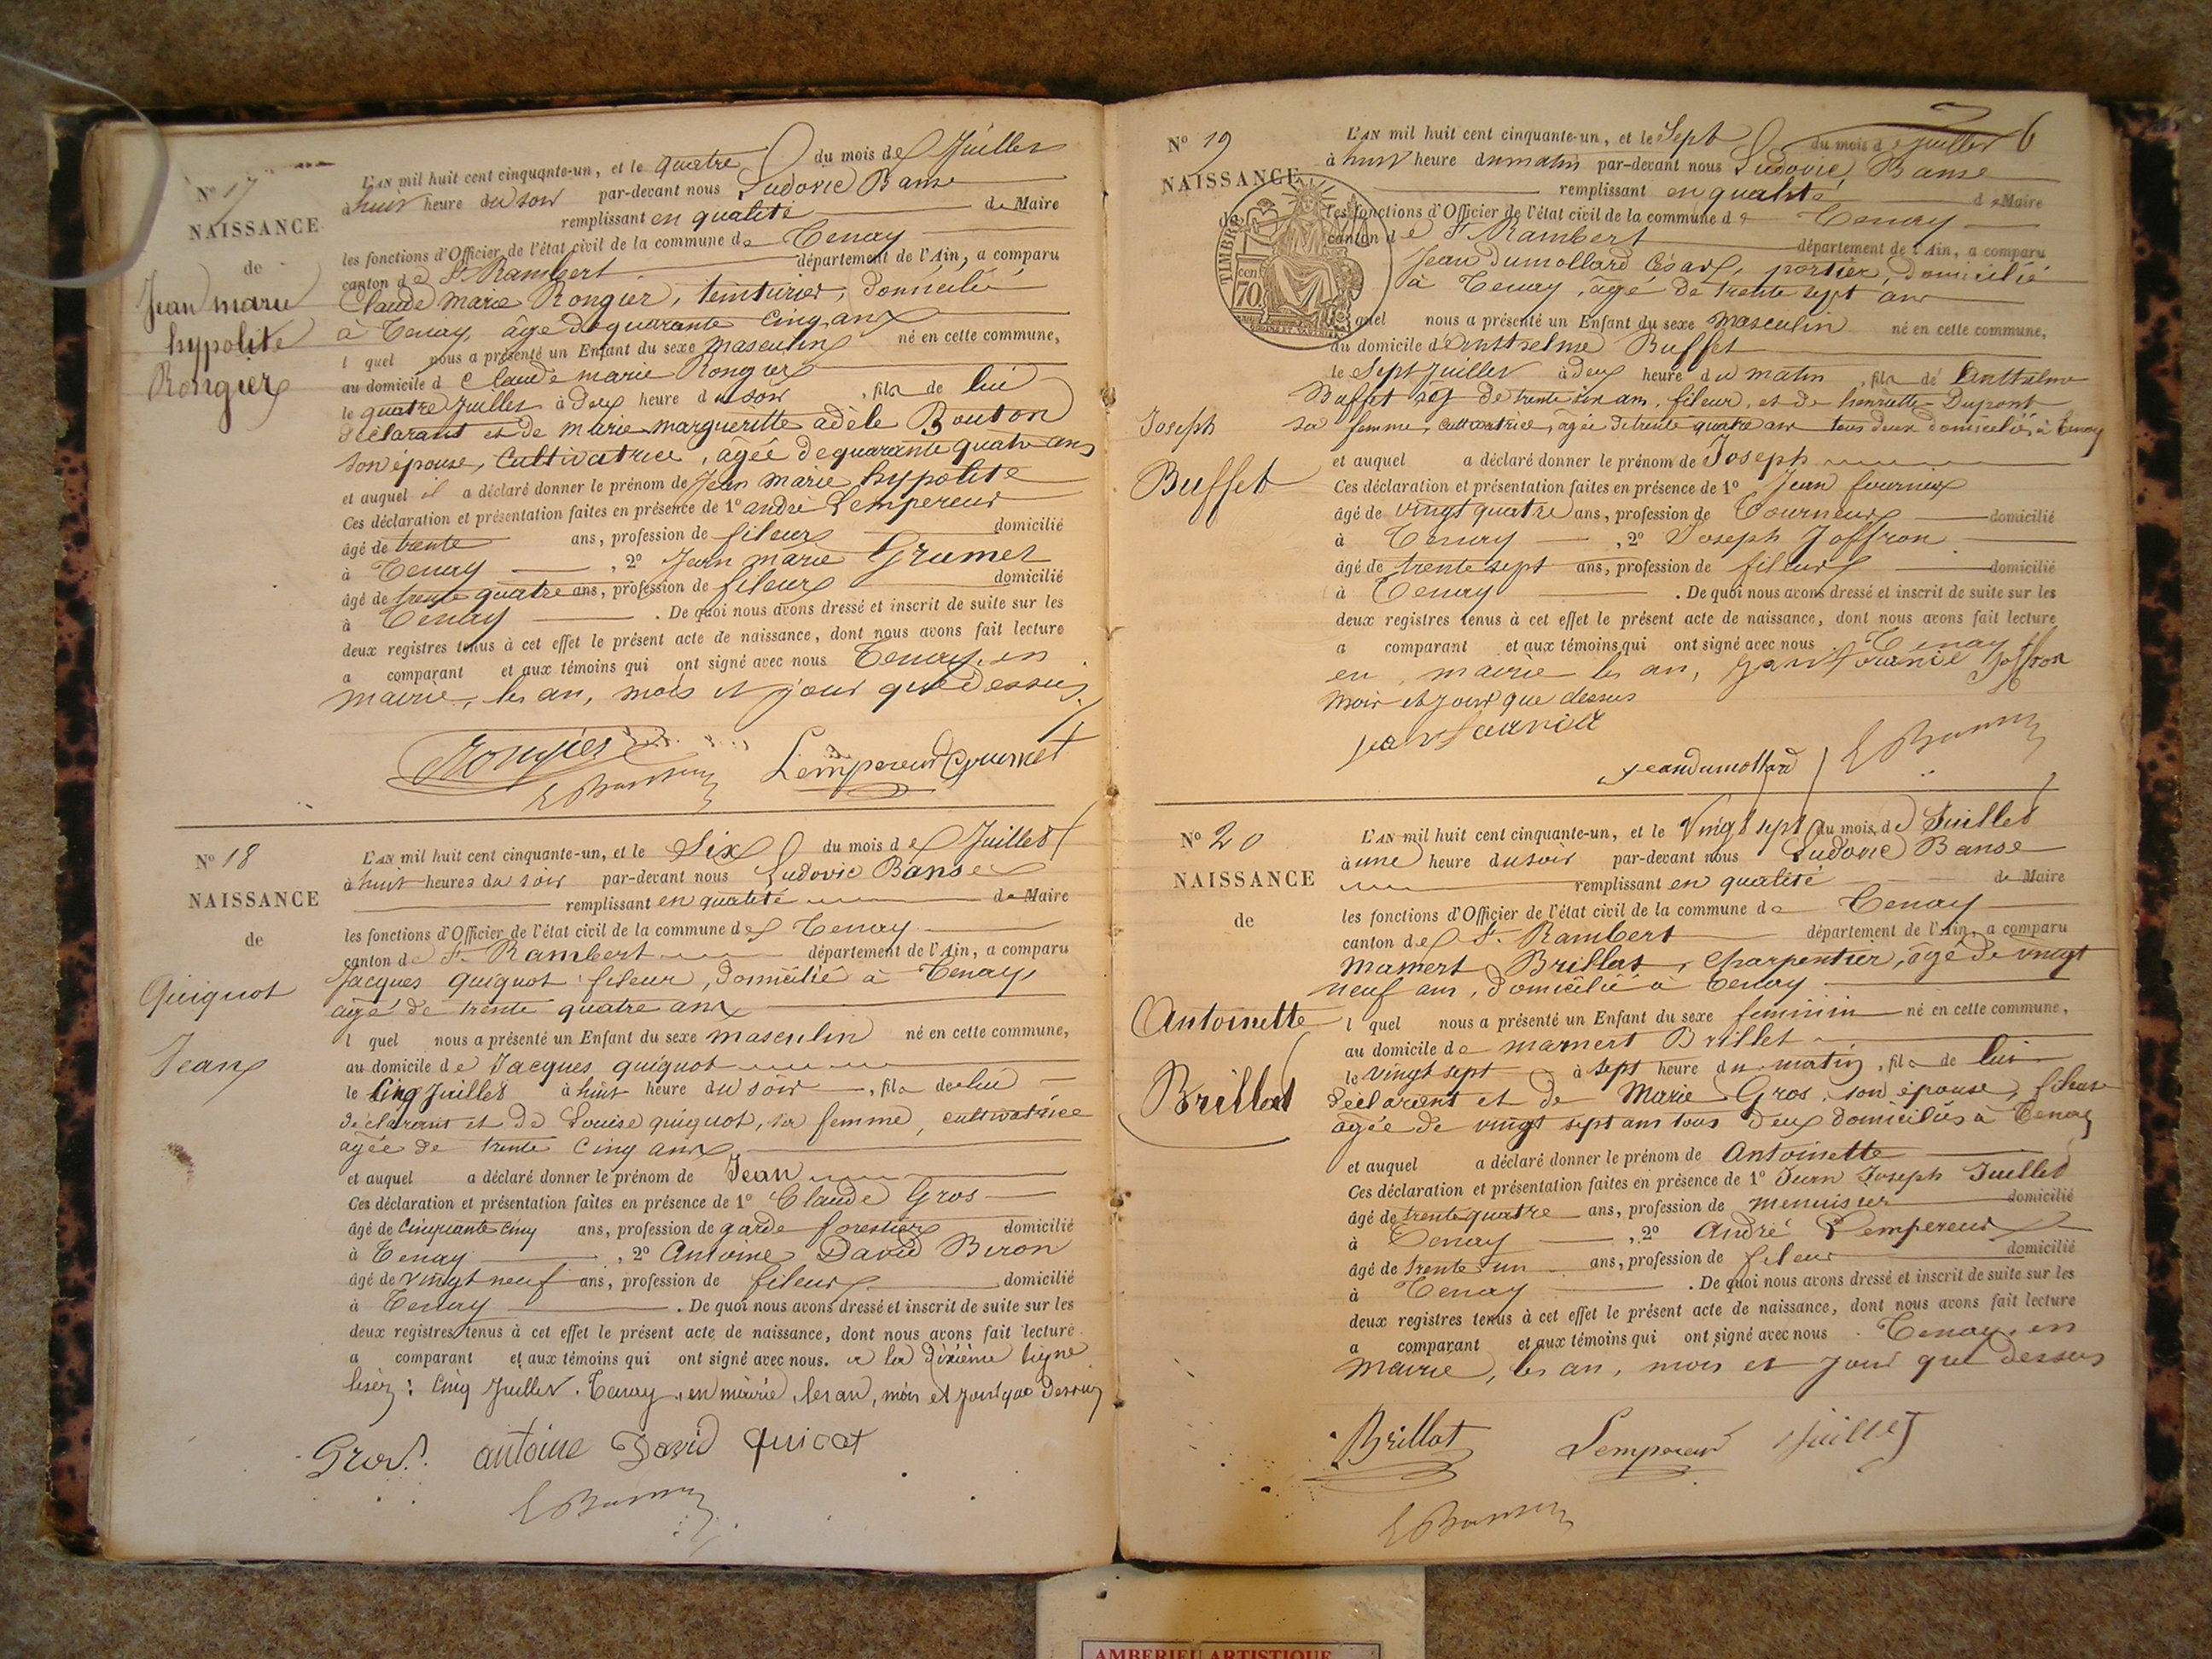 N° 17
NAISSANCE
de
Jean marie
hypolite
Rongier
L'AN mil huit cent cinquante-un, et le quatre du mois de Juillet
à huit heure du soir par-devant nous Ludovic Banse
remplissant en qualité de Maire
les fonctions d'Officier de l'état civil de la commune de Tenay
canton de St Rambert département de l'Ain, a comparu
Claude marie Rongier, teinturier, domicilié
à Tenay, âgé de quarante cinq ans
l quel nous a présenté un Enfant du sexe masculin né en cette commune,
au domicile d Claude marie Rongier
le quatre Juillet à deux heure du soir, fils de lui
déclarant et de marie margueritte adèle Bouton
son épouse, cultivatrice, âgée de quarante quatre ans
et auquel il a déclaré donner le prénom de Jean marie hypolite
Ces déclaration et présentation faites en présence de 1° andré Lempereur
âgé de trente ans, profession de fileur domicilié
à Tenay, 2° Jean marie Grumet
âgé de trente quatre ans, profession de fileur domicilié
à Tenay. De quoi nous avons dressé et inscrit de suite sur les
deux registres tenus à cet effet le présent acte de naissance, dont nous avons fait lecture
a comparant et aux témoins qui ont signé avec nous Tenay, en
mairie, les an, mois et jour que dessus
Rongier Lempereur Grumet
N° 18
NAISSANCE
de
Quiquot
Jean
L'AN mil huit cent cinquante-un, et le Six du mois de Juillet
à huit heures du soir par-devant nous Ludovic Banse
remplissant en qualité de Maire
les fonctions d'Officier de l'état civil de la commune de Tenay
canton de St Rambert département de l'Ain, a comparu
Jacques quiquot fileur, domicilié à Tenay,
âgé de trente quatre ans
l quel nous a présenté un Enfant du sexe masculin né en cette commune,
au domicile de Jacques quiquot
le Cinq Juillet à huit heure du soir, fils de lui
déclarant et de Louise quiquot, sa femme, cultivatrice
âgée de trente cinq ans
et auquel a déclaré donner le prénom de Jean
Ces déclaration et présentation faites en présence de 1° Claude Gros
âgé de cinquante cinq ans, profession de garde forestier domicilié
à Tenay, 2° Antoine David Biron
âgé de vingt neuf ans, profession de fileur domicilié
à Tenay. De quoi nous avons dressé et inscrit de suite sur les
deux registres tenus à cet effet le présent acte de naissance, dont nous avons fait lecture
a comparant et aux témoins qui ont signé avec nous. a la dixième ligne
lisez: Cinq Juillet. Tenay, en mairie, les an, mois et jour que dessus
Gros antoine David
N° 19
NAISSANCE
TIMBRE
cen
70
Joseph
Buffet
6
L'AN mil huit cent cinquante-un, et le Sept du mois de Juillet
à huit heure du matin par-devant nous Ludovic Banse
remplissant en qualité de Maire
les fonctions d'Officier de l'état civil de la commune de Tenay
canton de St Rambert département de l'Ain, a comparu
Jean Dumollard César, portier, domicilié
à Tenay, âgé de trente sept ans
quel nous a présenté un Enfant du sexe masculin né en cette commune,
au domicile d'Antthelme Buffet
le Sept Juillet à deux heure du matin, fils de Antthelme
Buffet âgé de trente six ans, fileur, et de henriette Dupont
sa femme, cultivatrice, âgée de trente quatre ans tous deux domiciliés à Tenay
et auquel a déclaré donner le prénom de Joseph
Ces déclaration et présentation faites en présence de 1° Jean fournier
âgé de vingt quatre ans, profession de Tourneur domicilié
à Tenay, 2° Joseph Joffron
âgé de trente sept ans, profession de fileur domicilié
à Tenay. De quoi nous avons dressé et inscrit de suite sur les
deux registres tenus à cet effet le présent acte de naissance, dont nous avons fait lecture
a comparant et aux témoins qui ont signé avec nous. Tenay
en mairie les an, Joffron
mois et jour que dessus
jeandumollard
N° 20
NAISSANCE
de
Antoinette
Brillat
L'AN mil huit cent cinquante-un, et le Vingt sept du mois de Juillet
à une heure du soir par-devant nous Ludovic Banse
remplissant en qualité de Maire
les fonctions d'Officier de l'état civil de la commune de Tenay
canton de St Rambert département de l'Ain, a comparu
Mamert Brillat, Charpentier, âgé de vingt
neuf ans, domicilié à Tenay
l quel nous a présenté un Enfant du sexe feminin né en cette commune,
au domicile de mamert Brillet
le vingt sept à sept heure du matin, fils de lui
déclarant et de Marie Gros son épouse, fileuse
âgée de vingt sept ans tous deux domiciliés à Tenay
et auquel a déclaré donner le prénom de Antoinette
Ces déclaration et présentation faites en présence de 1° Jean Joseph Juillet
âgé de trente quatre ans, profession de menuisier domicilié
à Tenay, 2° André Lempereur
âgé de trente un ans, profession de fileur domicilié
à Tenay. De quoi nous avons dressé et inscrit de suite sur les
deux registres tenus à cet effet le présent acte de naissance, dont nous avons fait lecture
a comparant et aux témoins qui ont signé avec nous. Tenay, en
Mairie, les an, mois et jour que dessus
Brillat Lempereur Juillet
AMBERIEU ARTISTIQUE